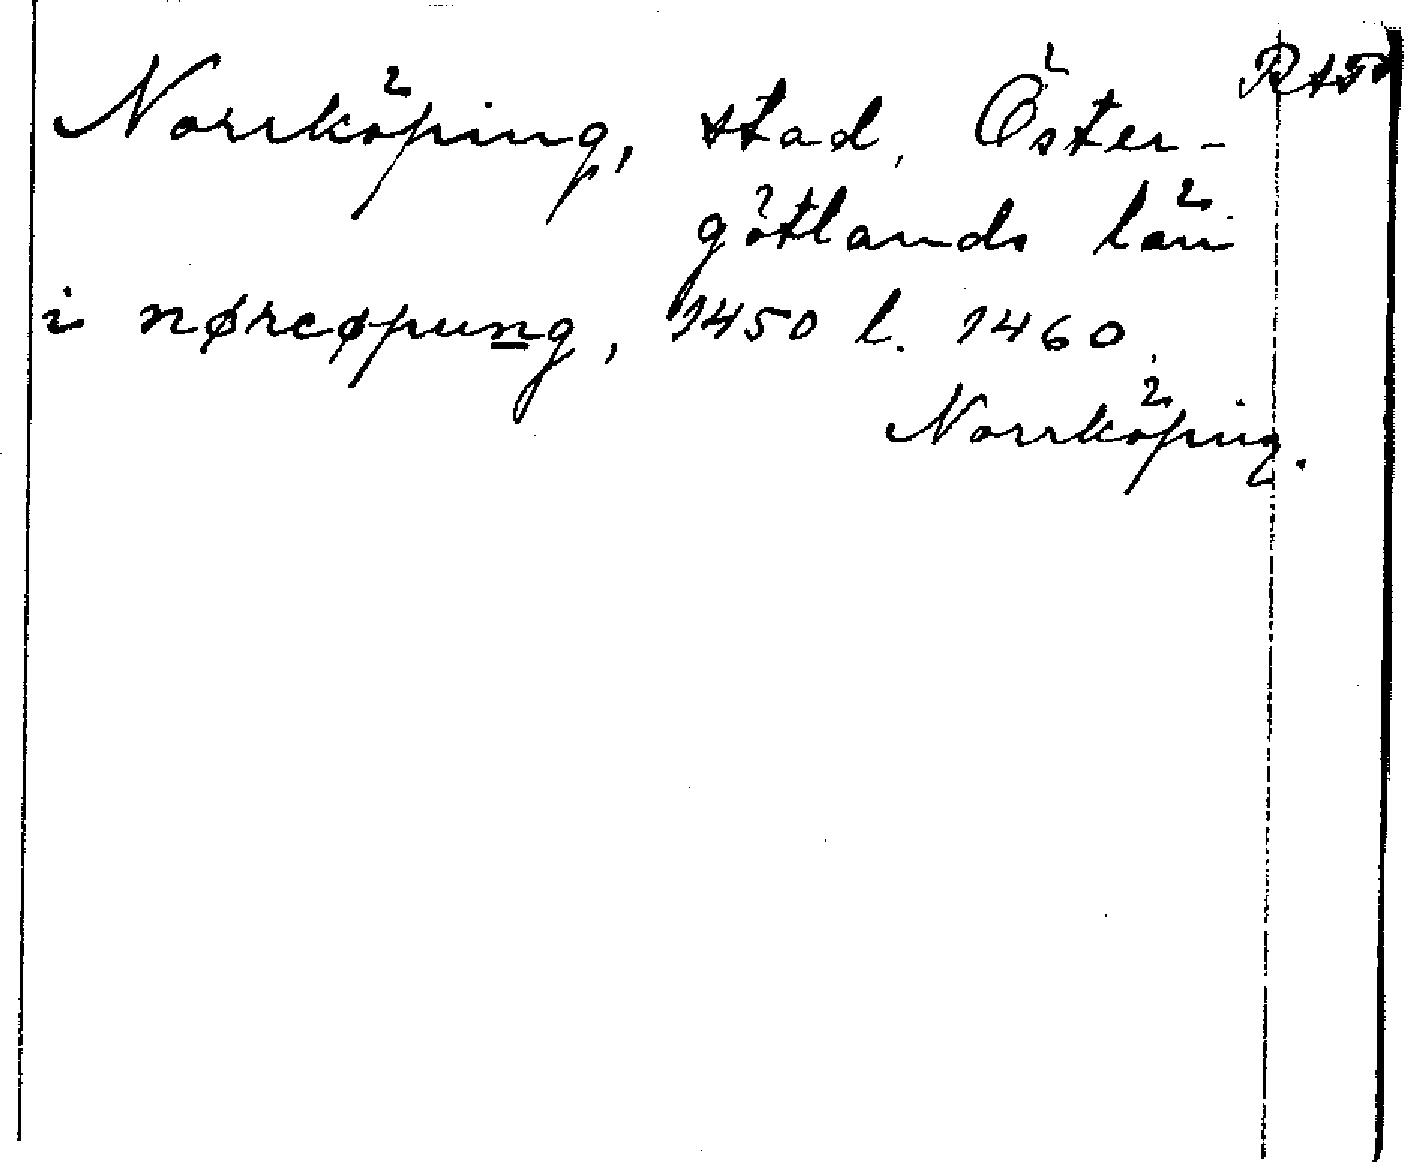 Norrköping, stad, Öster-
götlands län
i nørcøpung, 1450 l. 1460.
Norrköping.